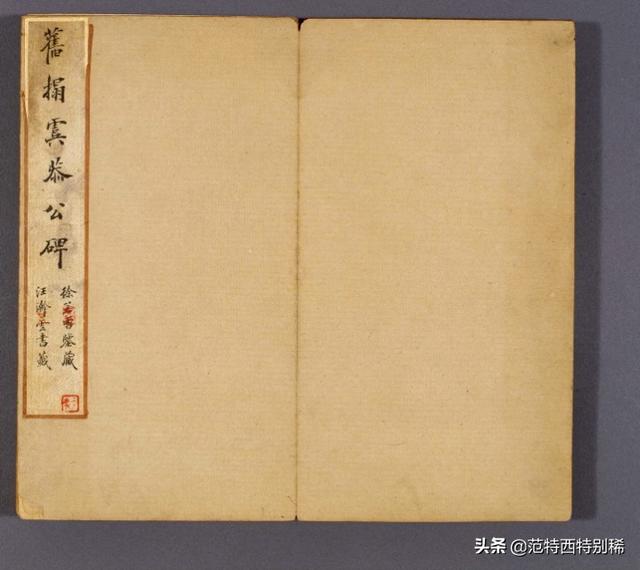 舊搨虞恭公碑
徐若雪鑒藏
汪瀞雲書藏
头条 @范特西特别稀